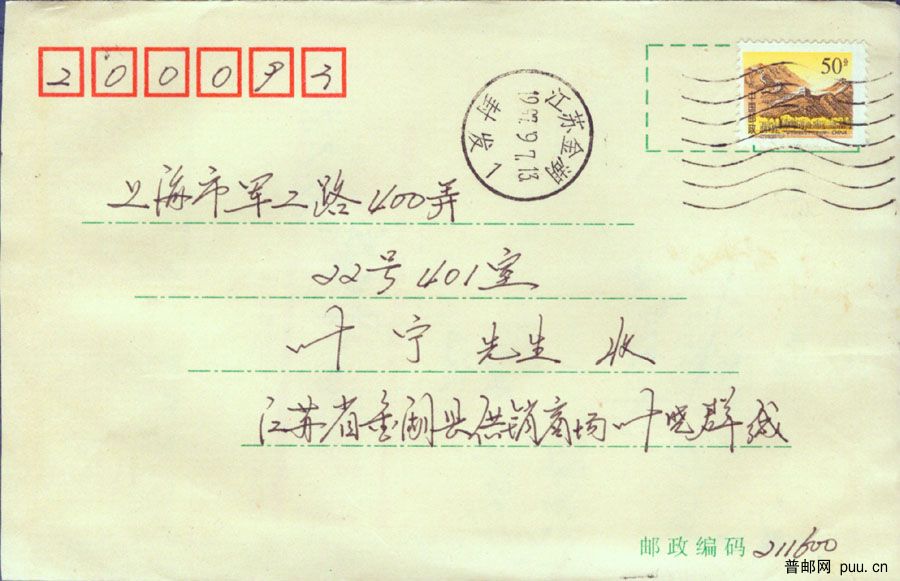 200093
50分
中国邮政
CHINA
江苏金湖
1997.9.7.18
封发
1
上海市军工路400弄
22号401室
叶宁先生 收
江苏省金湖县供销商场叶晓群缄
邮政编码 211600
普邮网 puu.cn